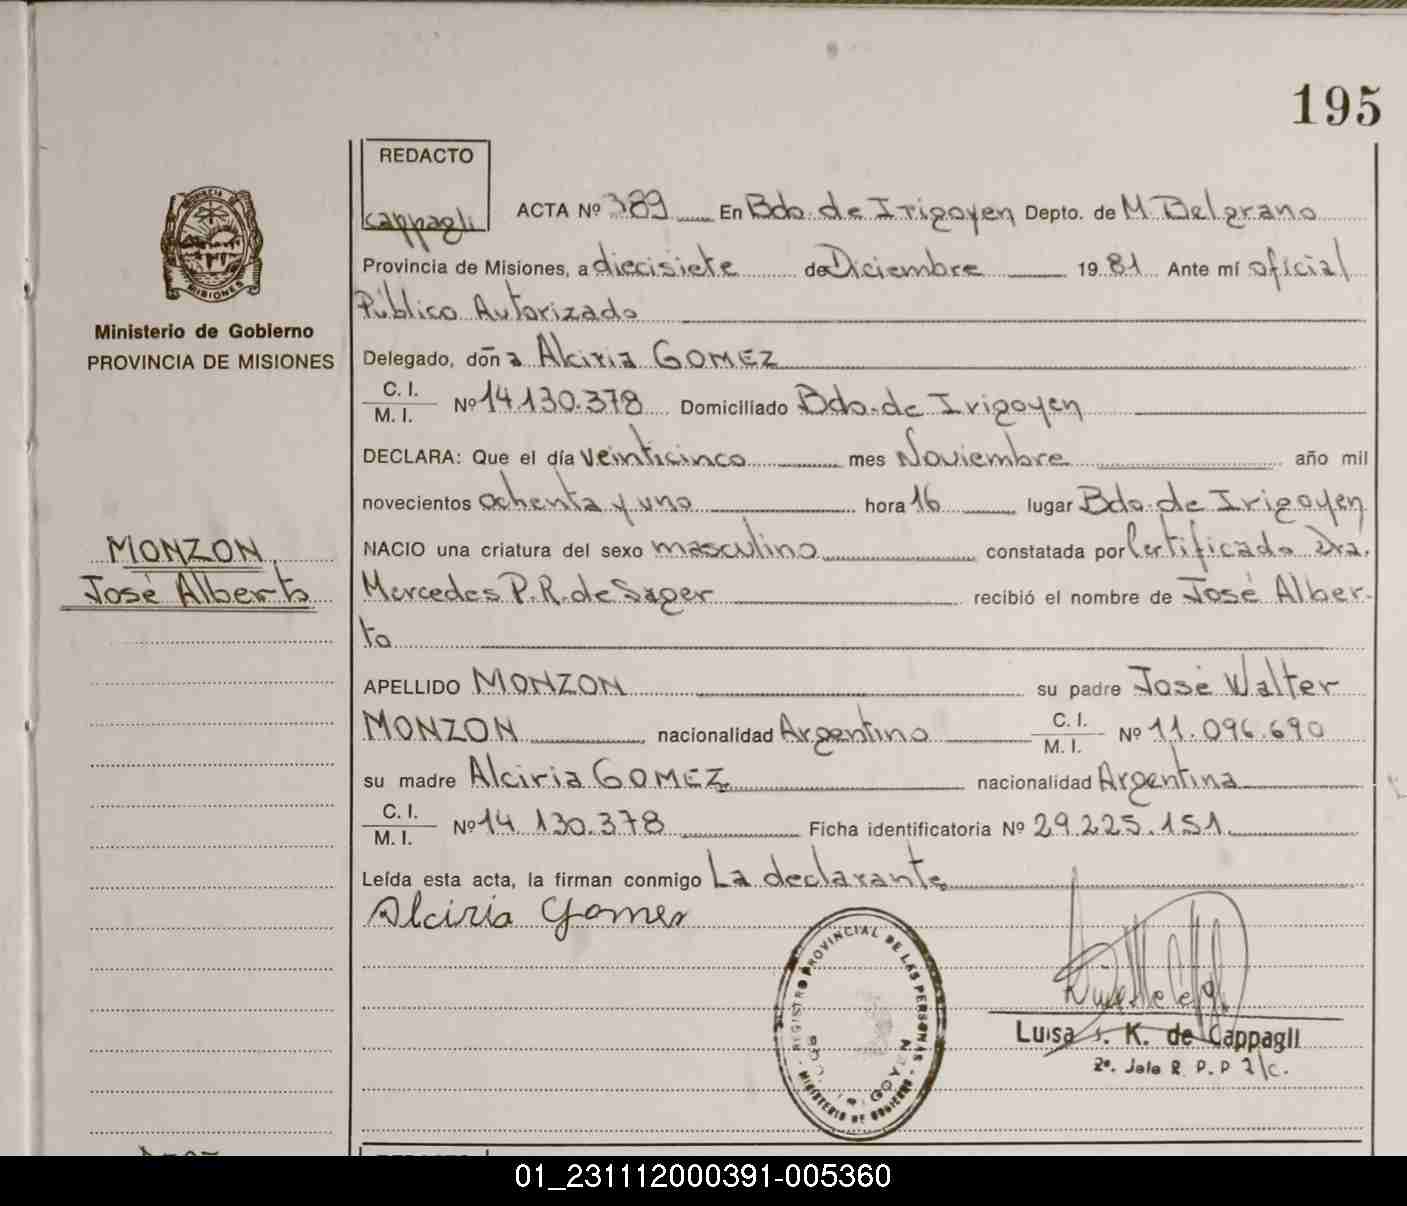 195
REDACTO
Cappagli
ACTA Nº 389 En Bdo. de Irigoyen Depto. de M. Belgrano
Provincia de Misiones, a diecisiete de Diciembre 19 81 Ante mí oficial
Público Autorizado
MISIONES
Ministerio de Gobierno
PROVINCIA DE MISIONES
Delegado, doña Alciria GOMEZ
C. I.
M. I. Nº 14.130.378 Domiciliado Bdo. de Irigoyen
DECLARA: Que el día veinticinco mes Noviembre año mil
novecientos ochenta y uno hora 16 lugar Bdo. de Irigoyen
MONZON,
José Alberto
NACIO una criatura del sexo masculino constatada por Certificado Dra.
Mercedes P.R. de Sager recibió el nombre de José Alber-
to
APELLIDO MONZON su padre José Walter
MONZON nacionalidad Argentino C. I. M. I. Nº 11.096.690
su madre Alciria GOMEZ nacionalidad Argentina
C. I.
M. I. Nº 14.130.378 Ficha identificatoria Nº 29.225.151
Leída esta acta, la firman conmigo La declarante
Alciria Gomes
REGISTRO PROVINCIAL DE LAS PERSONAS
MINISTERIO DE GOBIERNO
IRIGOYEN
Luisa K. de Cappagli
2º. Jefe R. P. P.
01_231112000391-005360